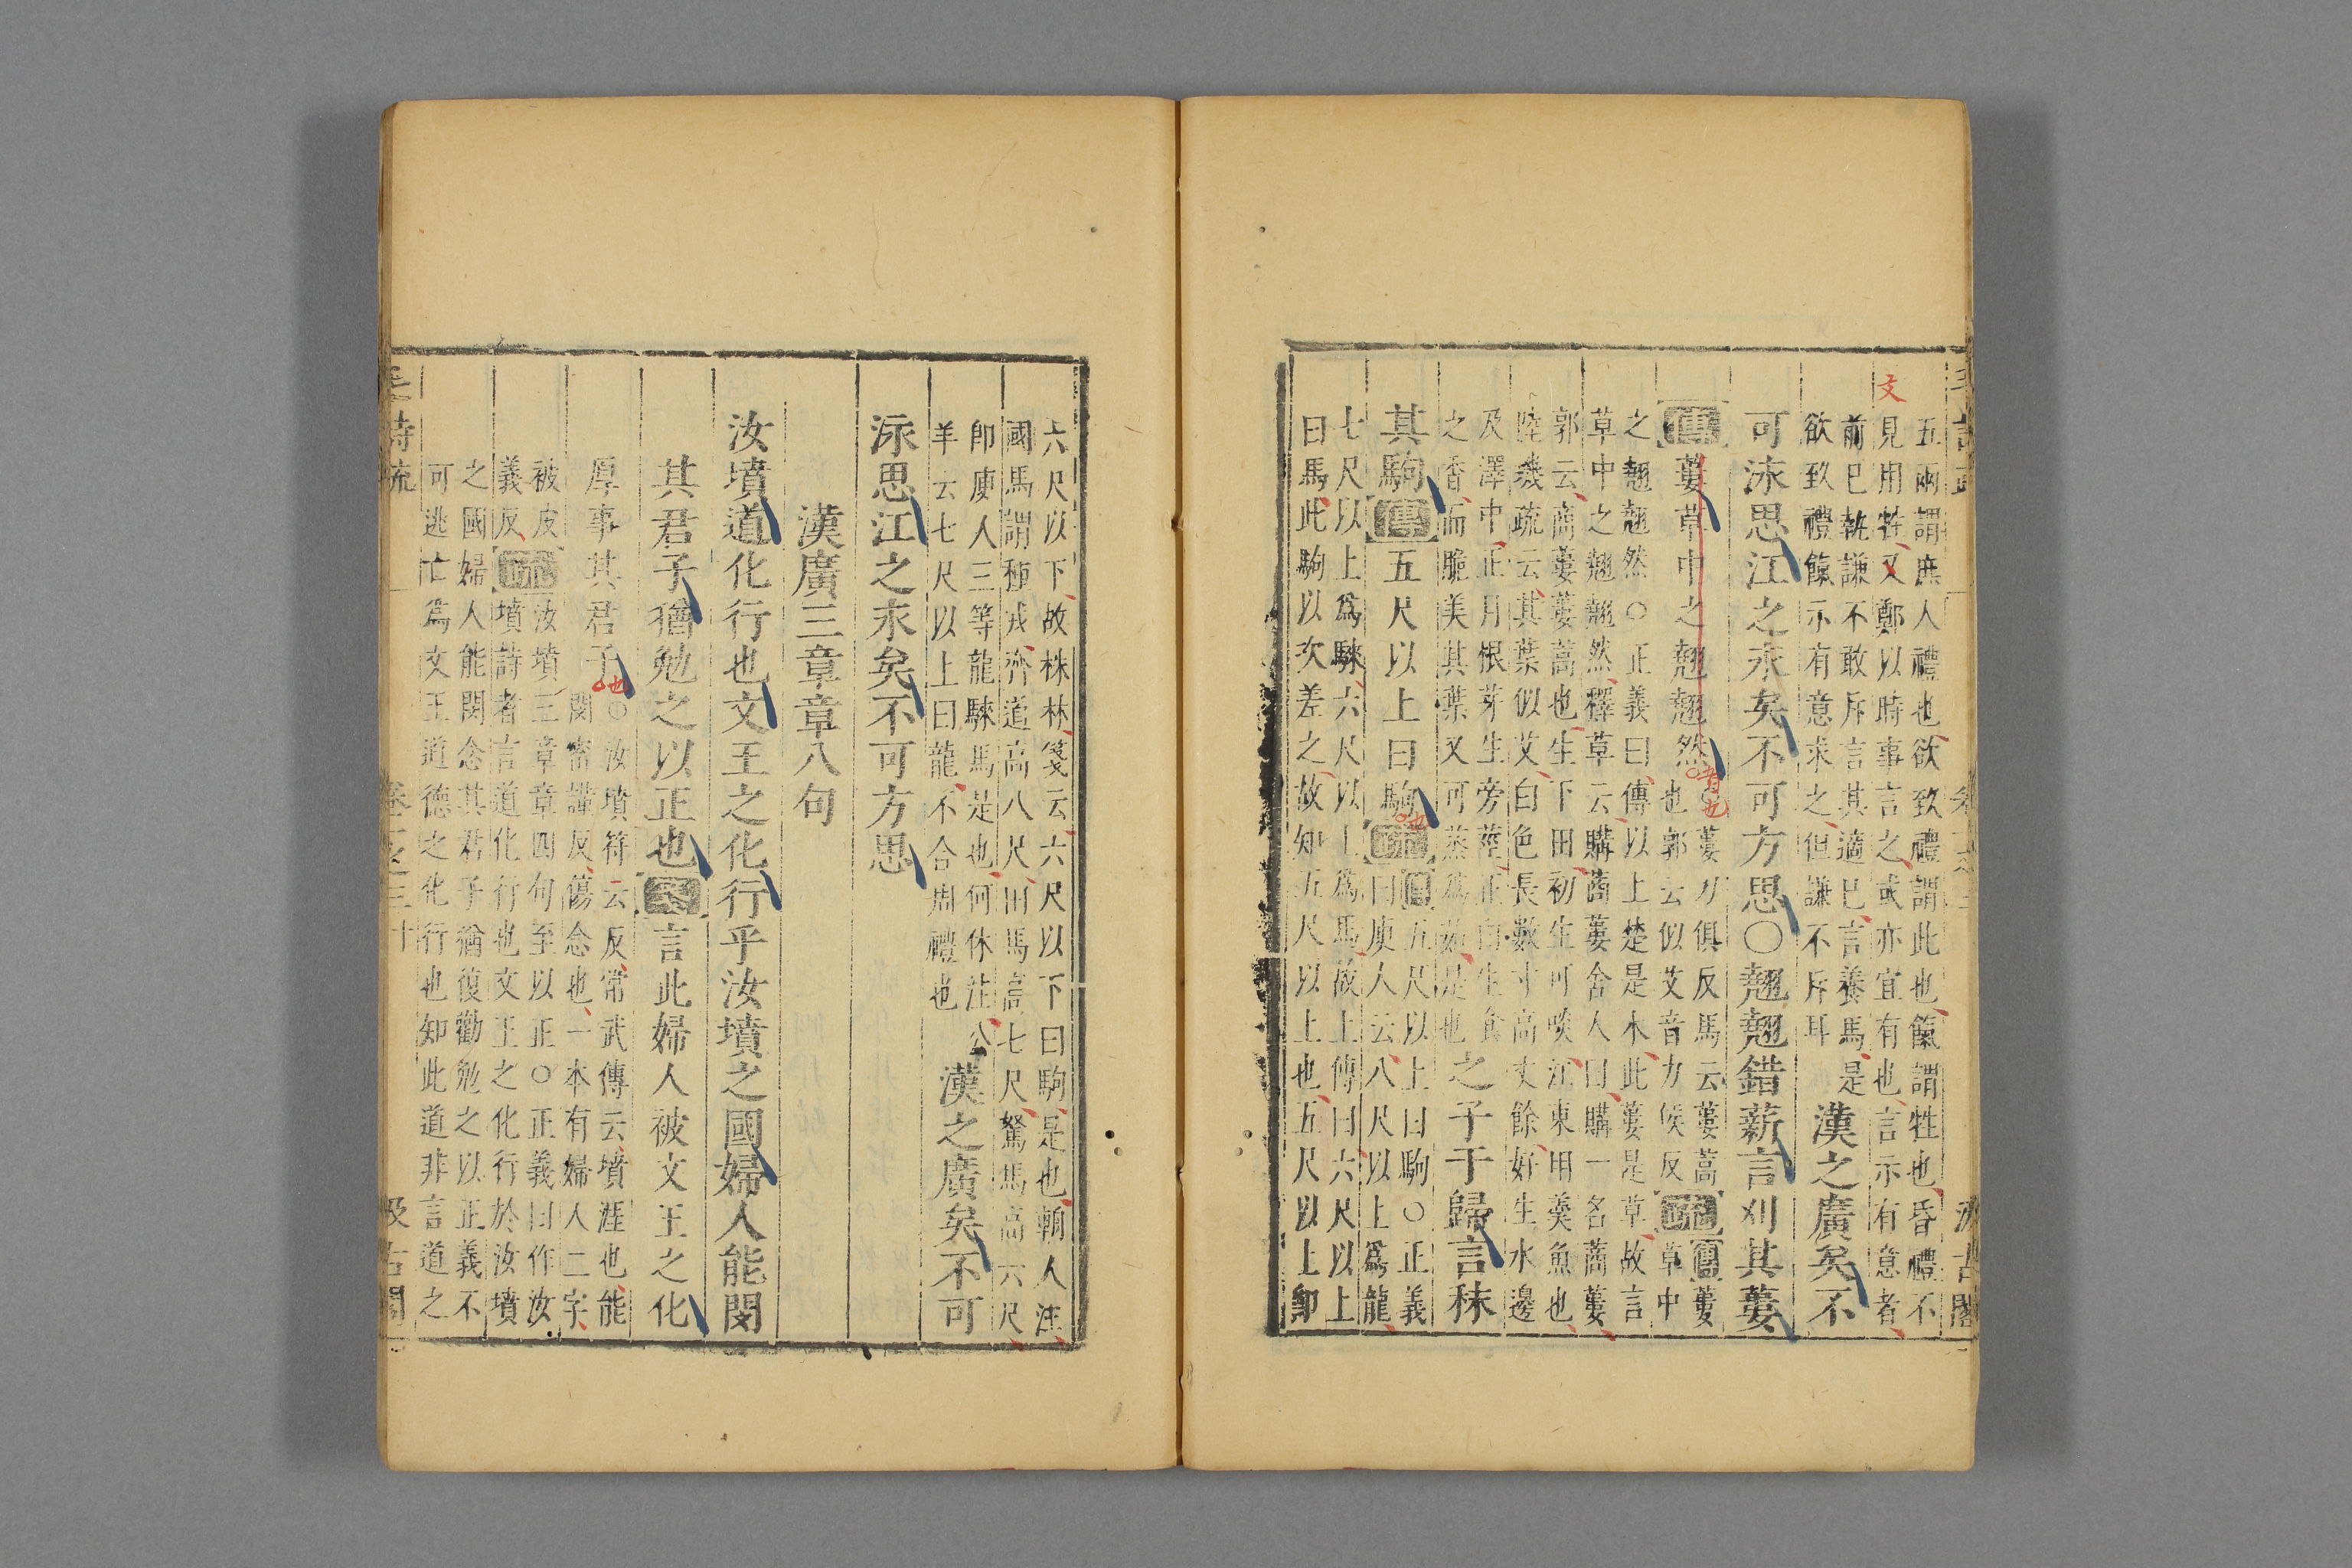 五兩謂庶人禮也欲致禮謂此也餼謂牲也昏禮不
見用牲文鄭以時事言之或亦宜有也言示有意者
前已執謙不敢斥言其適已言養馬是
欲致禮餼示有意求之但謙不斥耳
漢之廣矣不
可泳思江之永矣不可方思〇翹翹錯薪言刈其蔞
傳蔞草中之翹翹然
者也
蔞力俱反馬云蔞蒿
也郭云似艾音力侯反
疏傳蔞
草中
之翹翹然〇正義曰傳以上楚是木此蔞是草故言
草中之翹翹然釋草云購蔏蔞舍人曰購一名蔏蔞
郭云蔏蔞蔞蒿也生下田初生可啖江東用羹魚也
陸璣疏云其葉似艾白色長數寸高丈餘好生水邊
及澤中正月根芽生旁莖正白生食
之香而脆美其葉又可蒸爲茹是也
之子于歸言秣
其駒傳五尺以上曰駒
也
疏傳五尺以上曰駒〇正義
曰庾人云八尺以上爲龍
七尺以上爲騋六尺以上爲馬故上傳曰六尺以上
曰馬此駒以次差之故知五尺以上也五尺以上卽
六尺以下故株林箋云六尺以下曰駒是也輈人注
國馬謂種戎齊道高八尺田馬高七尺駑馬高六尺
卽庾人三等龍騋馬是也何休注公
羊云七尺以上曰龍不合周禮也
漢之廣矣不可
泳思江之永矣不可方思
漢廣三章章八句
汝墳道化行也文王之化行乎汝墳之國婦人能閔
其君子猶勉之以正也箋言此婦人被文王之化
厚事其君子
也
〇汝墳符云反常武傳云墳涯也能
閔密謹反傷念也一本有婦人二字
被皮
義反
疏汝墳三章章四句至以正〇正義曰作汝
墳詩者言道化行也文王之化行於汝墳
之國婦人能閔念其君子猶復勸勉之以正義不
可逃亡爲文王道德之化行也知此道非言道之